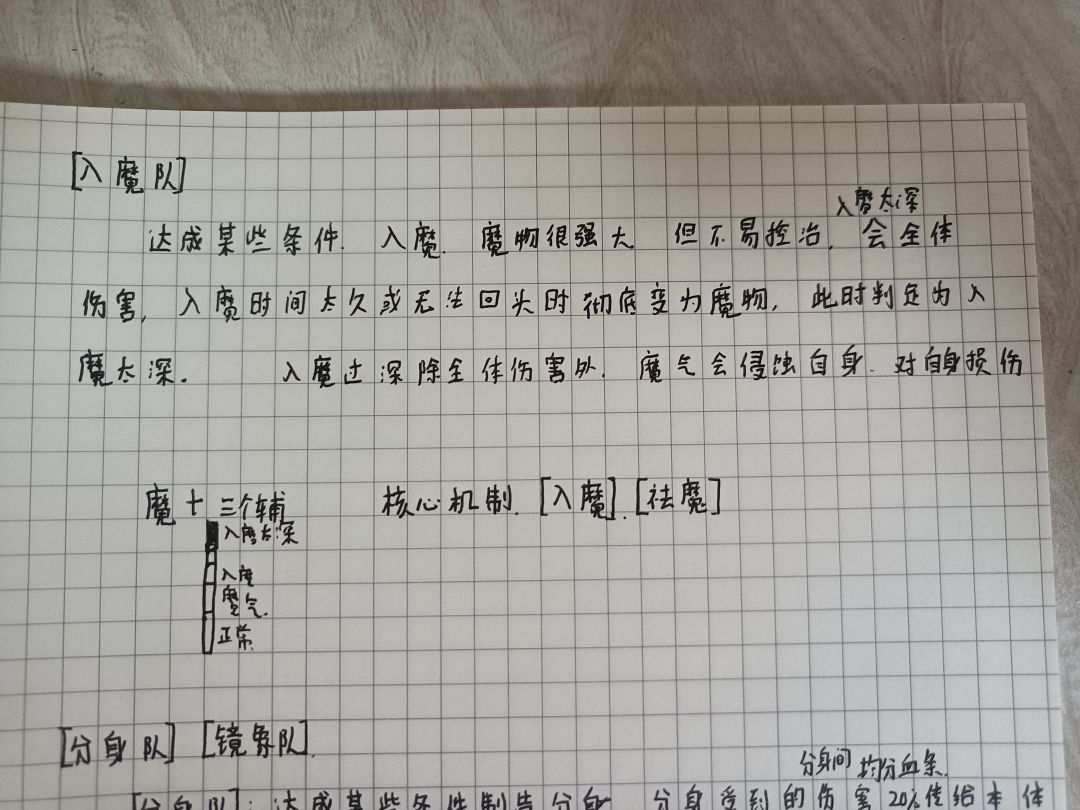 [入魔队]
入魔太深
达成某些条件. 入魔. 魔物很强大 但不易控治, 会全体
伤害, 入魔时间太久或无法回头时彻底变为魔物, 此时判定为入
魔太深. 入魔过深除全体伤害外. 魔气会侵蚀自身. 对自身损伤
魔十三个辅 核心机制. [入魔]. [祛魔]
入魔太深
入魔
魔气.
正常.
[分身队] [镜象队].
分身间 均分血条.
[分身队]: 达成某些条件制造分身. 分身受到的伤害20%传给本体